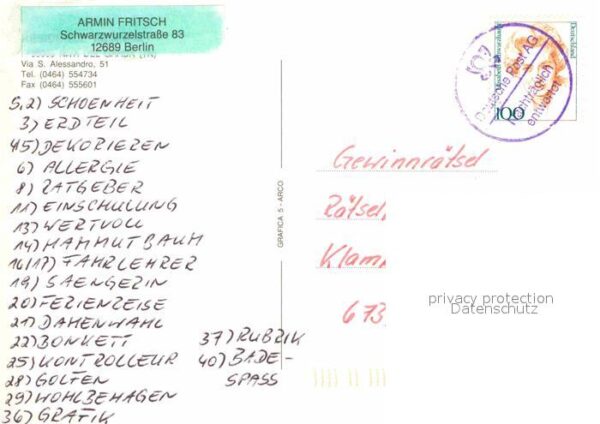 ARMIN FRITSCH
Schwarzwurzelstraße 83
12689 Berlin
Via S. Alessandro, 51
Tel. (0464) 554734
Fax (0464) 555601
5,2) SCHOENHEIT
3) ERDTEIL
45) DEKORIEREN
6) ALLERGIE
8) RATGEBER
11) EINSCHULUNG
13) WERTVOLL
14) MAMMUTBAUM
16/17) FAHRLEHRER
19) SAENGERIN
20) FERIENREISE
21) DAMENWAHL
22) BONKETT
25) KONTROLLEUR
28) GOLFEN
29) WOHLBEHAGEN
36) GRAFIK
37) RUBRIK
40) BADE-
SPASS
GRAFICA 5 - ARCO
Deutschland
100
Deutsche Post AG
Nachträglich
entwertet
Gewinnrätsel
Rätsel,
Klam
673
privacy protection
Datenschutz